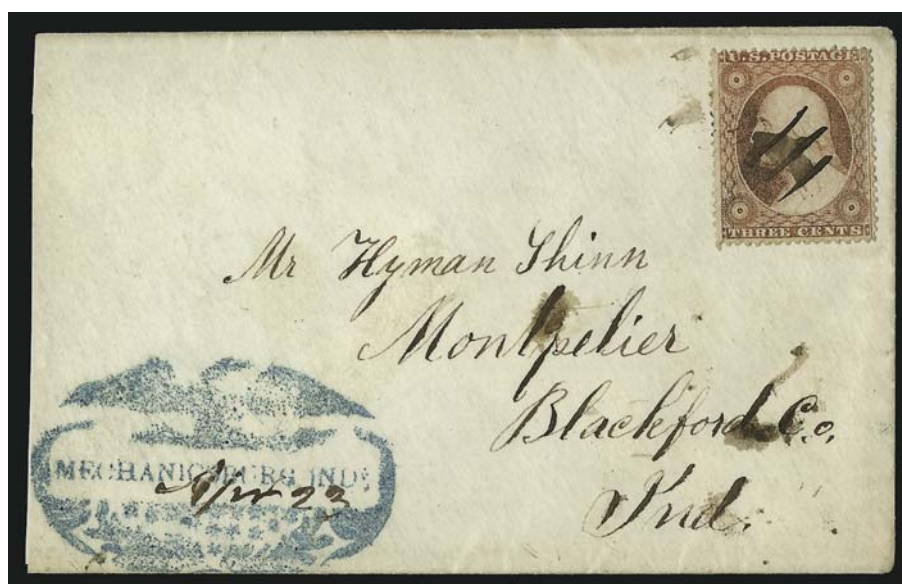 U.S. POSTAGE
THREE CENTS
Mr Hyman Shinn
Montpelier
Blackford Co.
Ind.
MECHANICSBURG IND.
Apr 23